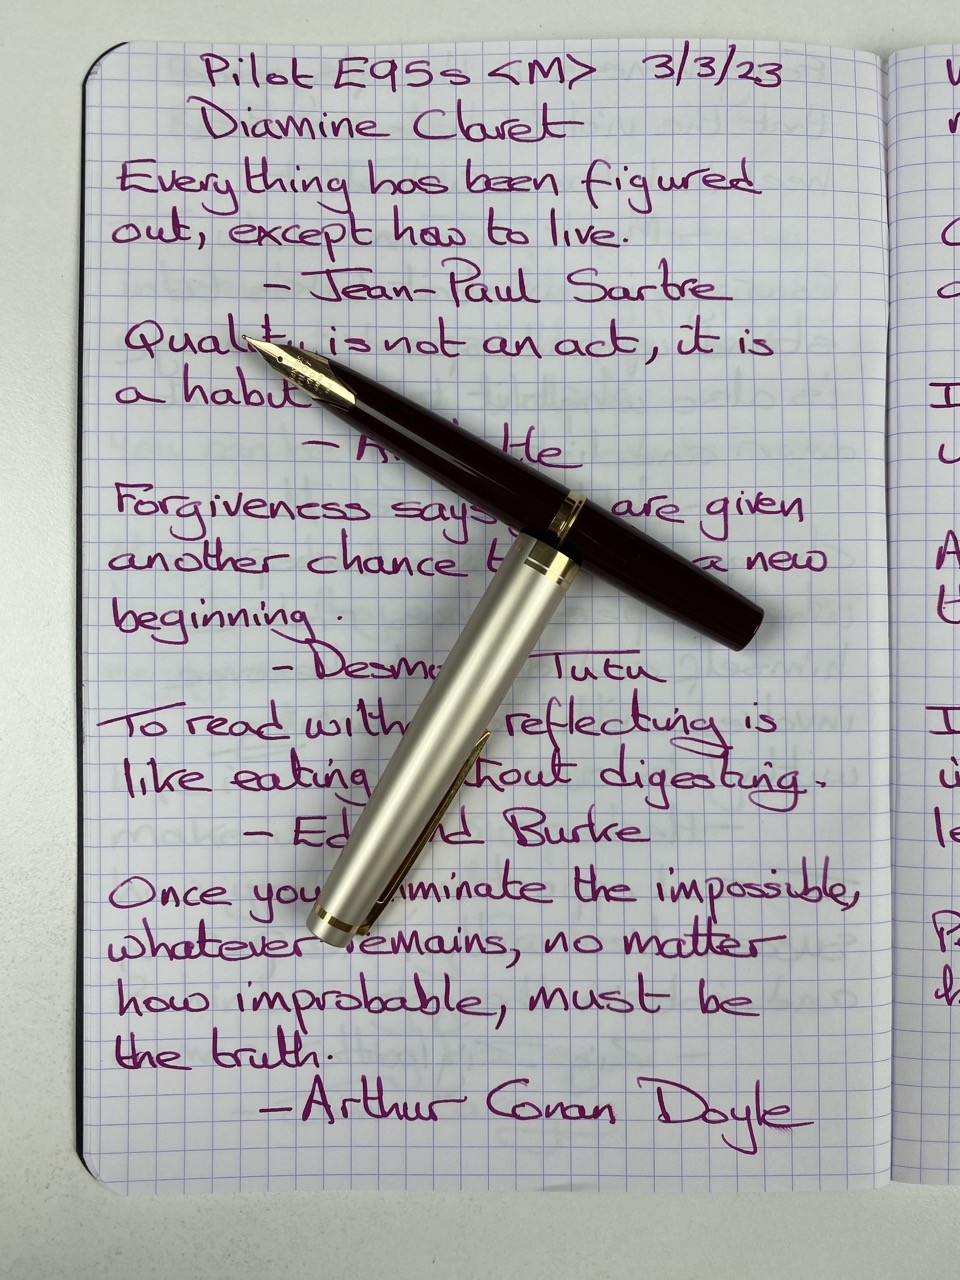 Pilot E95s <M> 3/3/23
Diamine Claret
Everything has been figured
out, except how to live.
- Jean-Paul Sartre
Quality is not an act, it is
a habit
-
Forgiveness says are given
another chance a new
beginning.
- Tutu
To read reflecting is
like eating digesting.
- Burke
Once you the impossible,
whatever remains, no matter
how improbable, must be
the truth.
- Arthur Conan Doyle